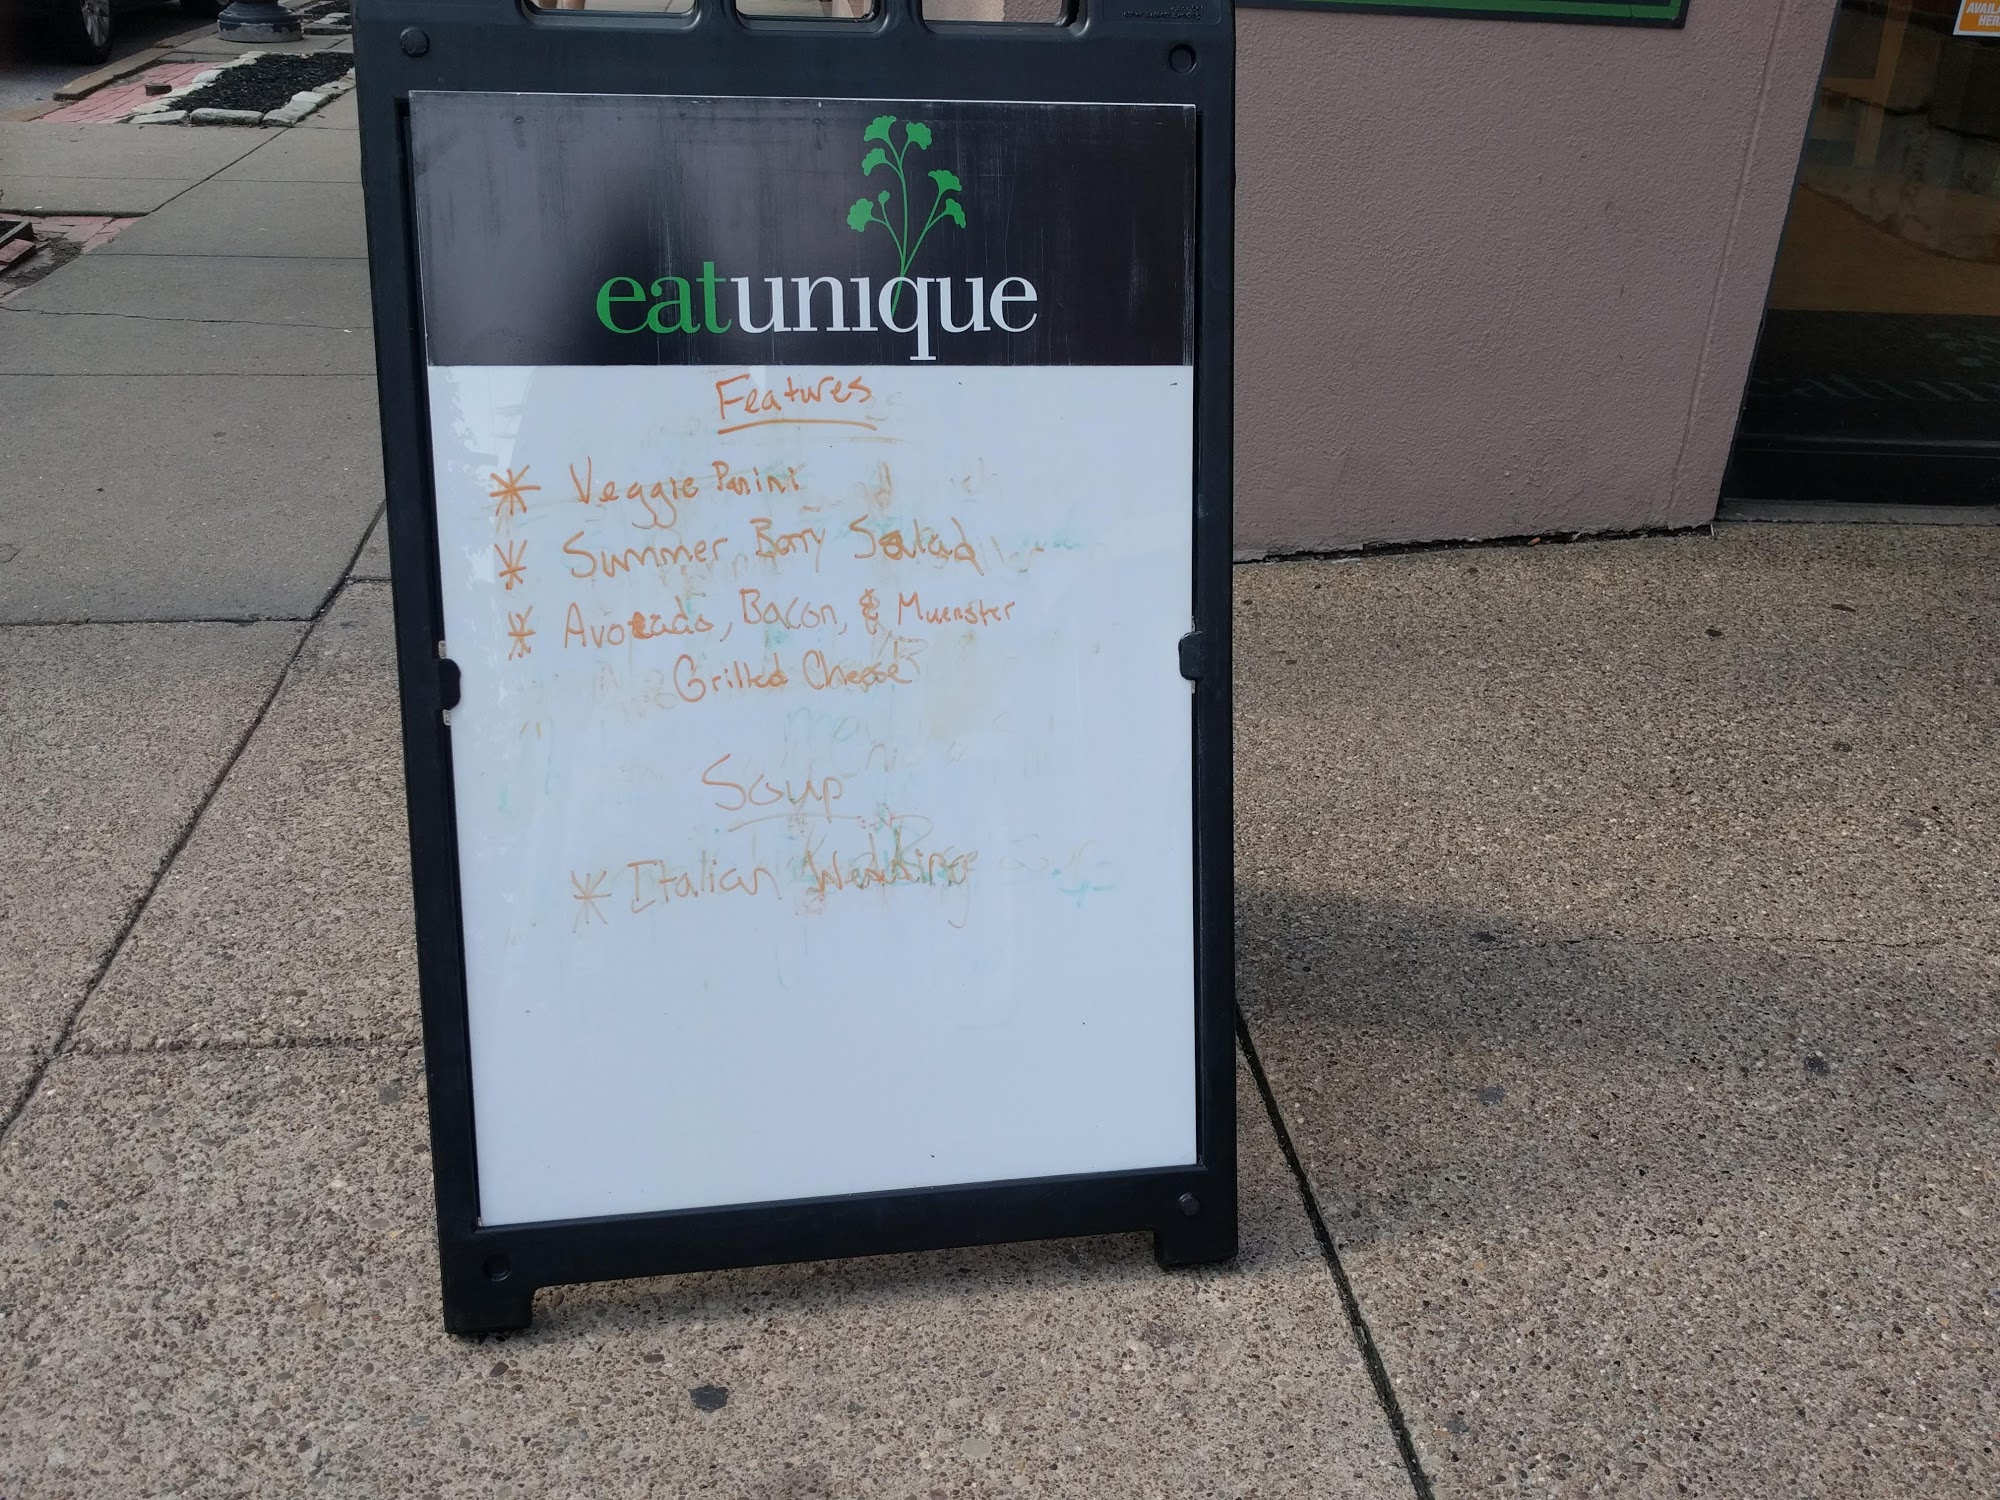 eatunique
Features
* Veggie Panini
* Summer Berry Salad
* Avocado, Bacon, & Muenster
Grilled Cheese
Soup
* Italian Wedding